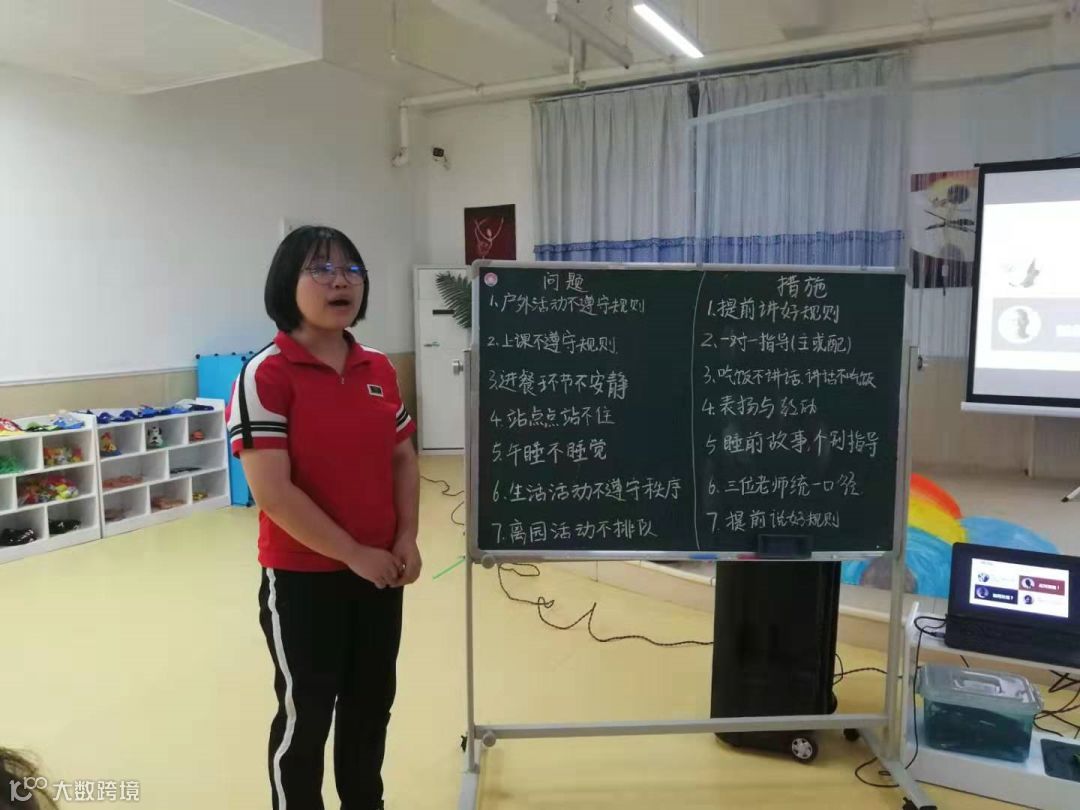 问题
1、户外活动不遵守规则
2、上课不遵守规则
3、进餐环节不安静
4、站点点站不住
5、午睡不睡觉
6、生活活动不遵守秩序
7、离园活动不排队
措施
1、提前讲好规则
2、一对一指导(主或配)
3、吃饭不讲话、讲话不吃饭
4、表扬与鼓动
5 睡前故事、个别指导
6、三位老师统一口径
7、提前说好规则
大数跨境